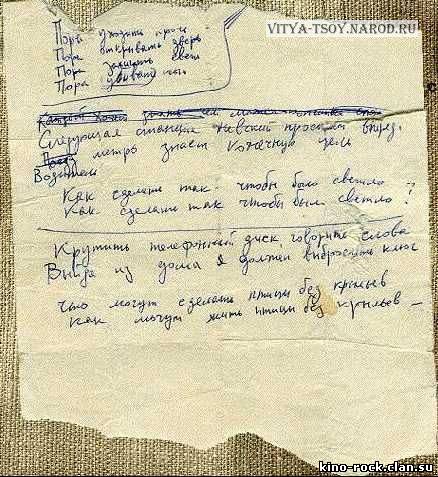 VITYA-TSOY.NAROD.RU
Пора уходить прочь
Пора открывать дверь
Пора зажигать свет
Пора убивать ночь
Следующая станция Невский проспект вперёд.
Водитель метро знает конечную цель
Как сделать так чтобы было светло ?
Как сделать так чтобы был светло ?
Крутить телефонный диск говорить слова
Выйдя из дома я должен выбросить ключ
Что могут сделать птицы без крыльев
Как могут жить птицы без крыльев —
kino-rock.clan.su